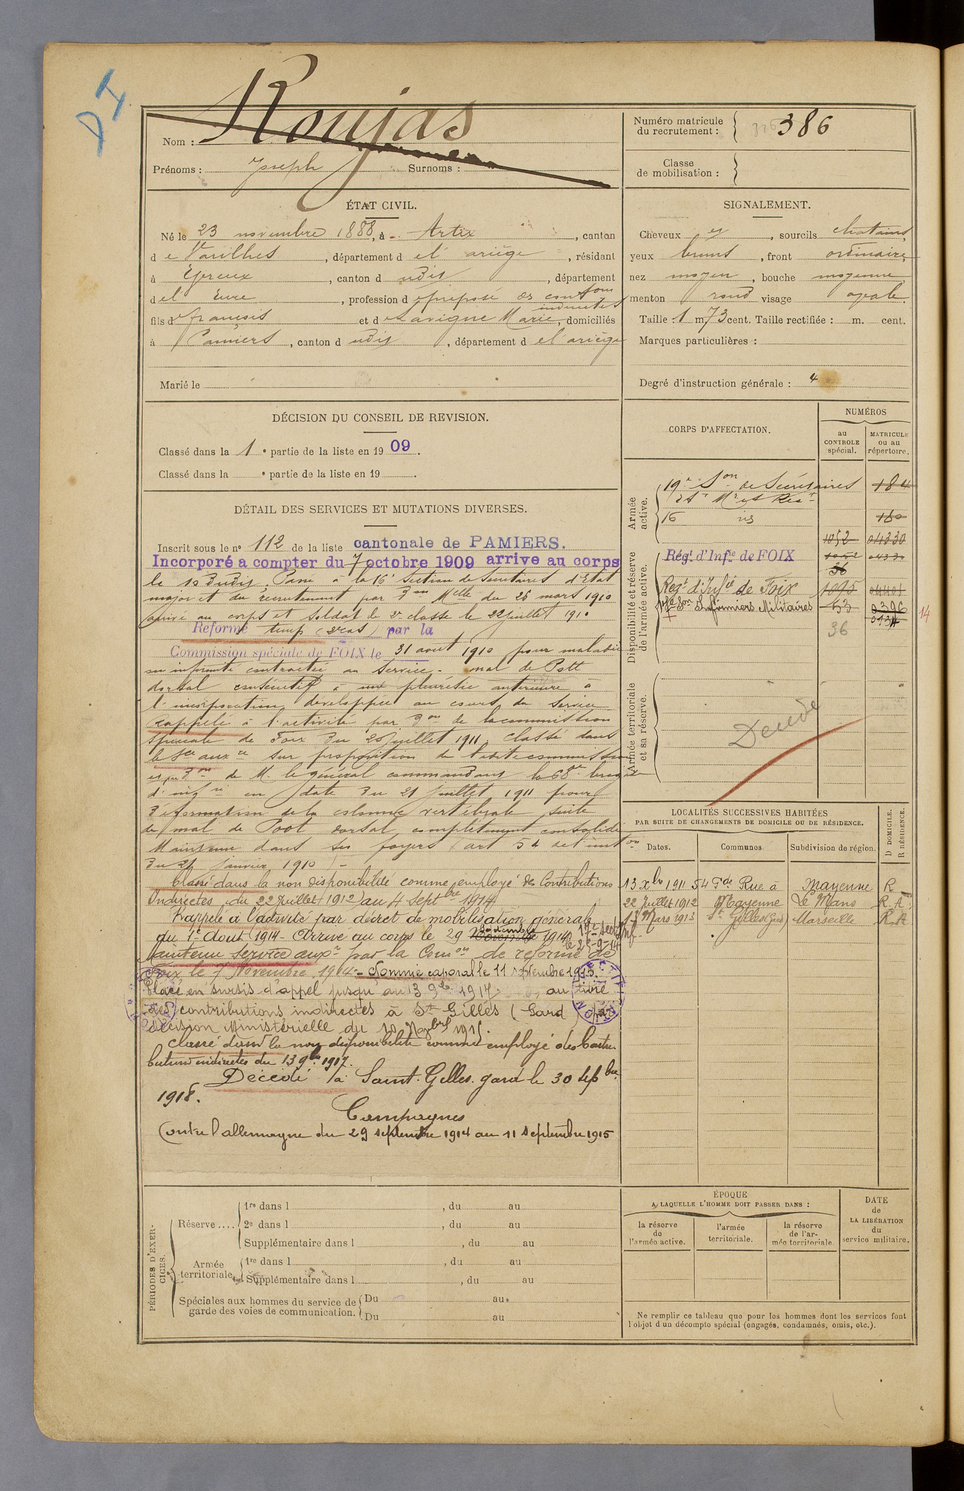 DI
Nom : Roujas
Prénoms : Joseph Surnoms :
Numéro matricule du recrutement : 386
Classe de mobilisation :
ÉTAT CIVIL.
Né le 23 novembre 1888, à Artix, canton
de Varilhes, département de l'ariège, résidant
à Evreux, canton d udis, département
del Eure, profession d préposé des contons indirectes
fils de François et de Lavigne Marie, domiciliés
à Pamiers, canton d udis, département d el ariège
Marié le
SIGNALEMENT.
Cheveux et, sourcils chatains,
yeux bruns, front ordinaire
nez moyen, bouche moyenne
menton rond visage ovale.
Taille : 1 m 73 cent. Taille rectifiée : m. cent.
Marques particulières :
Degré d'instruction générale : 4
DÉCISION DU CONSEIL DE REVISION.
Classé dans la 1e partie de la liste en 1909.
Classé dans la e partie de la liste en 19 .
DÉTAIL DES SERVICES ET MUTATIONS DIVERSES.
Inscrit sous le no 112 de la liste cantonale de PAMIERS.
Incorporé a compter du 7 octobre 1909 arrive au corps
le 10 udis. Passé à la 16e Section de Secrétaires d'Etat
major et du recrutement par Don Melle du 26 mars 1910
arrivé au corps et soldat de 2e classe le 22 juillet 1910
Réformé temp par la
Commission spéciale de FOIX le 31 aout 1910 pour maladie
ou infirmité contractée au service - mal de Pott
dorsal consécutif à une pleurésie antérieure à
l'incorporation, développée au cours du service
rappelé à l'activité par Don de la commission
spéciale de Foix du 20 juillet 1911, classé dans
le Sce auxre sur proposition de ladite commission
de M. le général commandant la 68e brigade
d'infie en date du 21 juillet 1911 pour
déformation de la colonne vertébrale suite
de mal de Pott dorsal, complètement consolidé
Maintenu dans ses foyers (art 54 de l'inston
du 21 janvier 1910) -
Classé dans la non disponibilité comme employé des Contributions
Indirectes, du 22 Juillet 1912 au 4 Septbre 1914
Rappelé à l'activité par décret de mobilisation générale
du 1er Aout 1914 - Arrivé au corps le 29 septembre 1914
Maintenu service auxre par la Comon de réforme de
Foix le 7 Novembre 1914 - Nommé caporal le 11 septembre 1915.
Placé en sursis d'appel jusqu'au 13 9bre 1917. au titre
des contributions indirectes à St Gilles (Gard)
décision Ministérielle du
Classé dans la non disponibilité comme employé des Contri-
butions indirectes du 13 9bre 1917.
Décédé à Saint-Gilles gard le 30 septbre
1918.
Campagnes
Contre l'allemagne du 29 septembre 1914 au 11 septembre 1915
CORPS D'AFFECTATION.
NUMÉROS
au CONTROLE spécial.
MATRICULE ou au répertoire.
Armée active.
19e Son de Secrétaires
d'Et Mor et Rect 184
16 id 180
Disponibilité et réserve de l'armée active.
1052 04330
Régt d'Infie de FOIX
56
Regt d'Infie de Foix 1095 04401
17e Son Infirmiers Militaires 53 0396
36
14
Armée territoriale et sa réserve.
Décédé
LOCALITÉS SUCCESSIVES HABITÉES
PAR SUITE DE CHANGEMENTS DE DOMICILE OU DE RÉSIDENCE.
D DOMICILE. R RÉSIDENCE.
Dates. Communes. Subdivision de région.
13 Xbre 1911 54 Gde Rue à Mayenne R
22 Juillet 1912 Mayenne Le Mans R A
17 Mars 1913 St Gilles (Gard) Marseille R A
PÉRIODES D'EXERCICES.
Réserve .... 1re dans l , du au
2e dans l , du au
Supplémentaire dans l , du au
Armée territoriale. 1re dans l , du au
Supplémentaire dans l , du au
Spéciales aux hommes du service de garde des voies de communication. Du au
Du au
ÉPOQUE
A LAQUELLE L'HOMME DOIT PASSER DANS :
la réserve de l'armée active.
l'armée territoriale.
la réserve de l'armée territoriale.
DATE de LA LIBÉRATION du service militaire.
Ne remplir ce tableau que pour les hommes dont les services font
l'objet d'un décompte spécial (engagés, condamnés, omis, etc.).